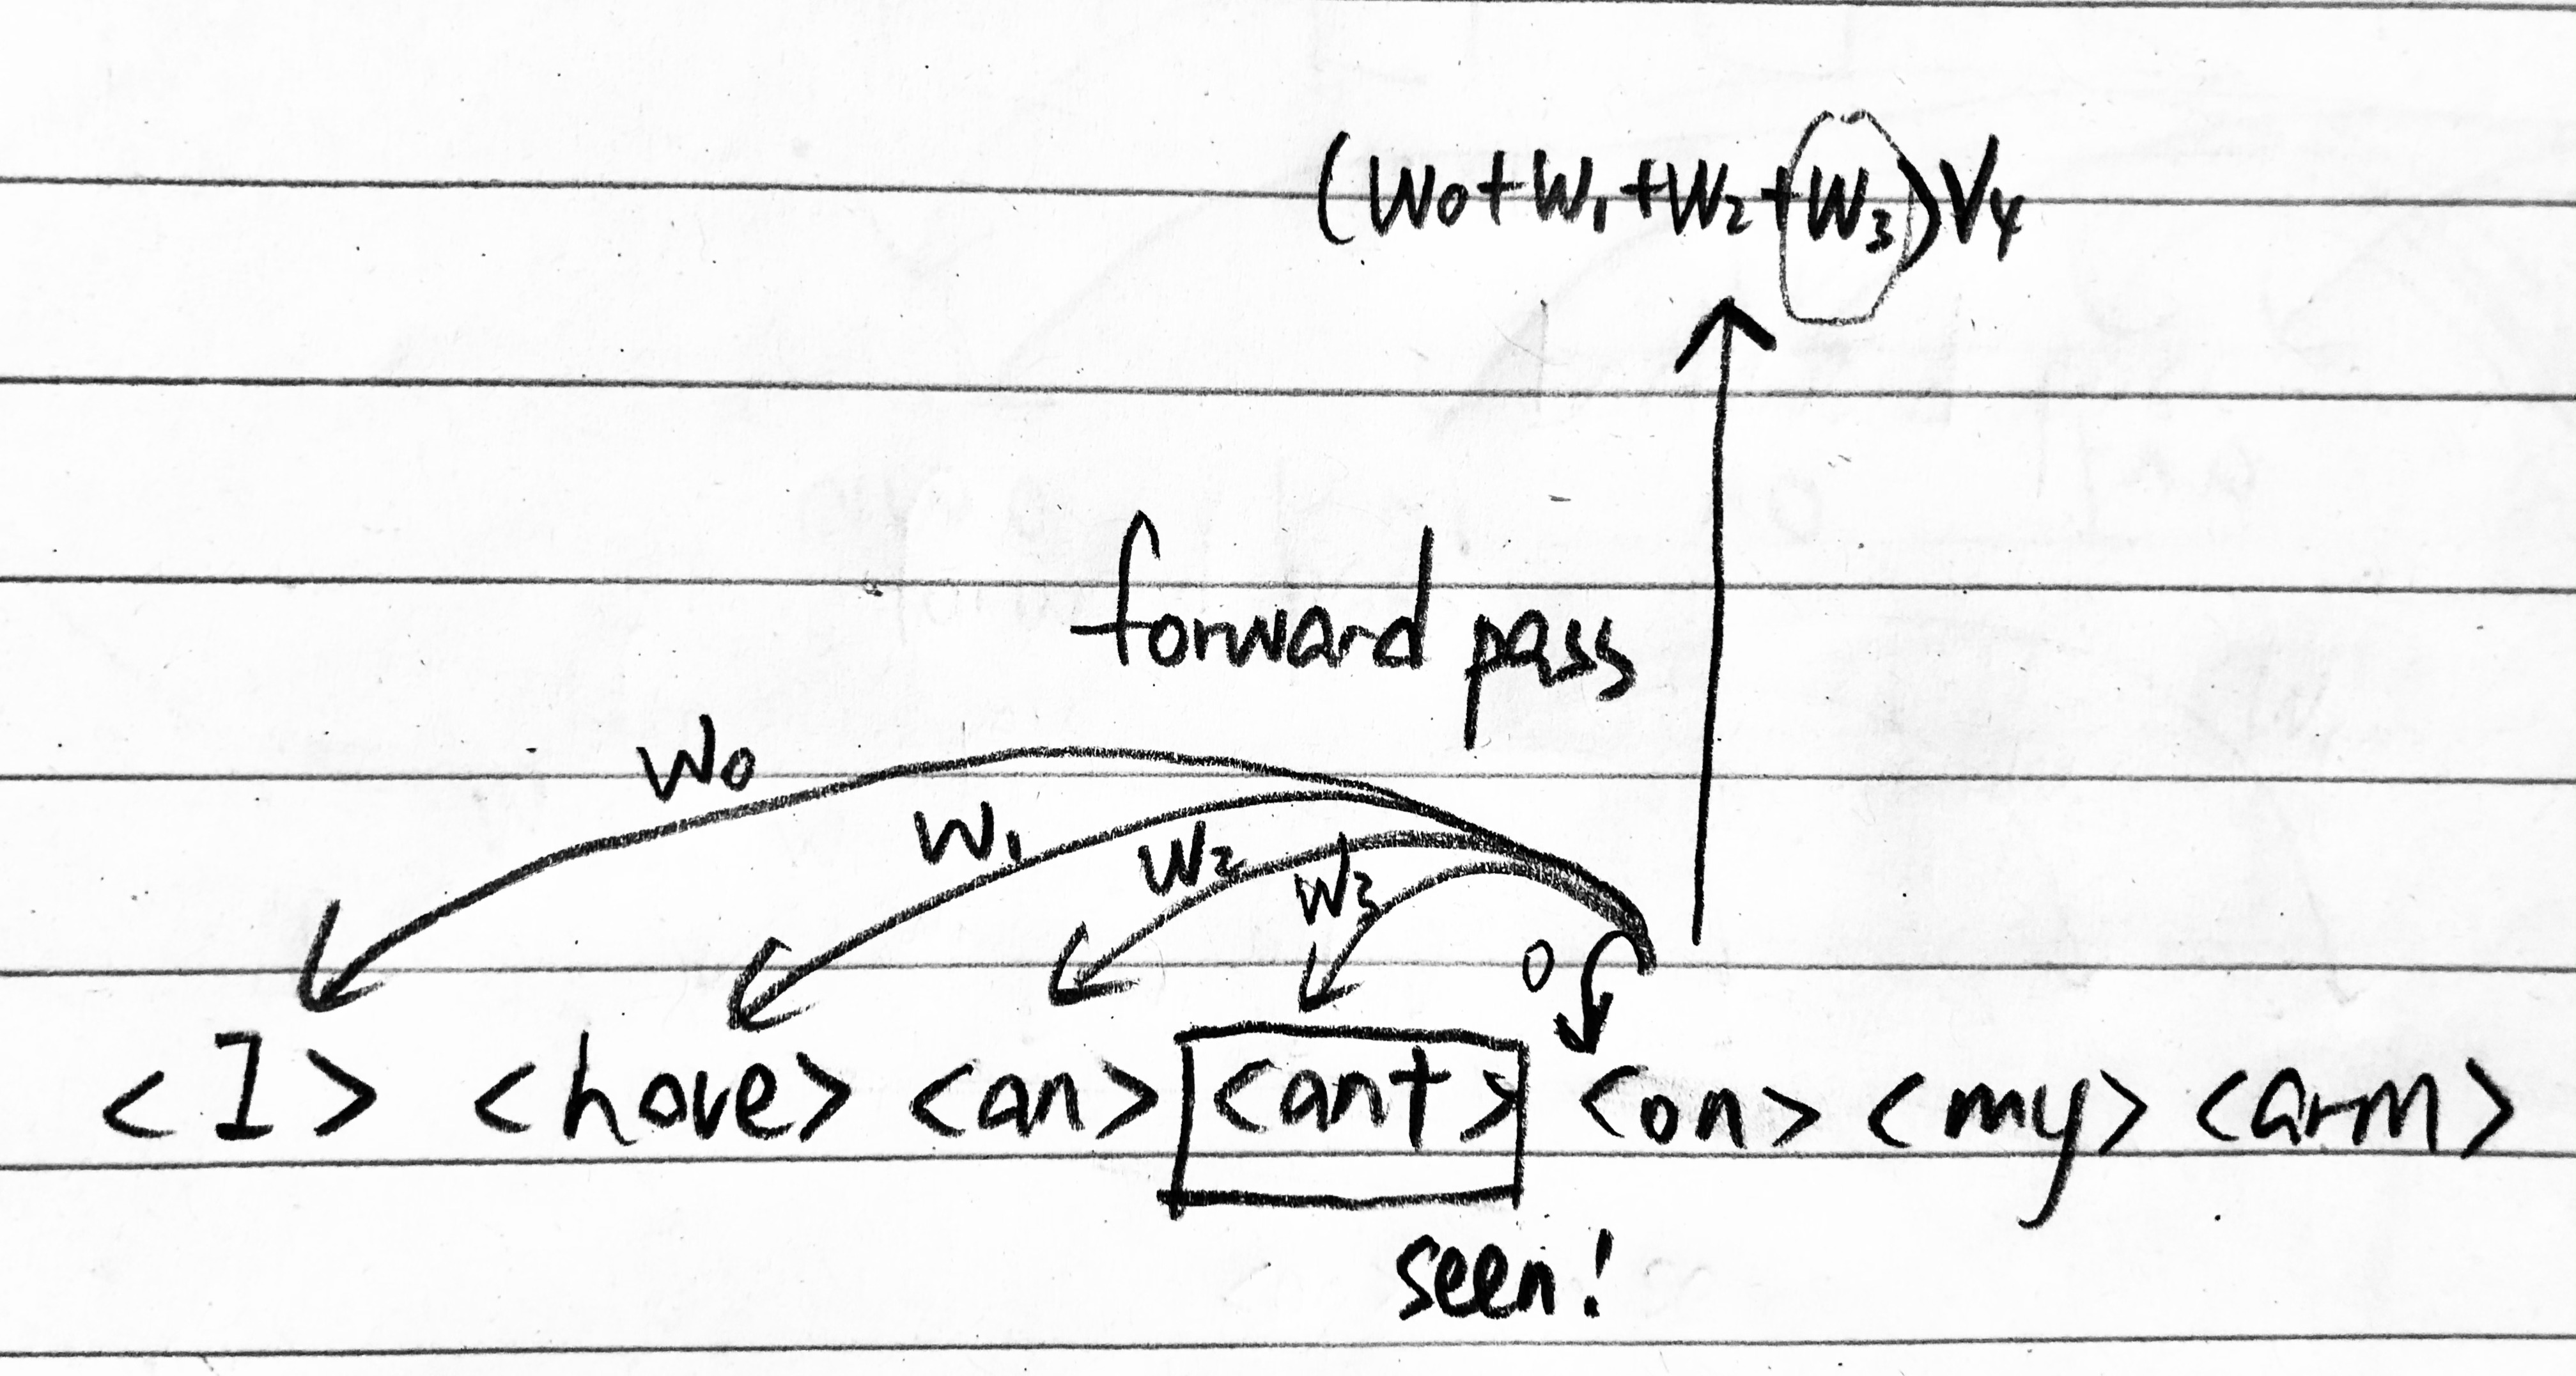 (W0+W1+W2+W3)V4
forward pass
W0
W1
W2
W3
0
<I> <have> <an> <ant> <on> <my> <arm>
seen!